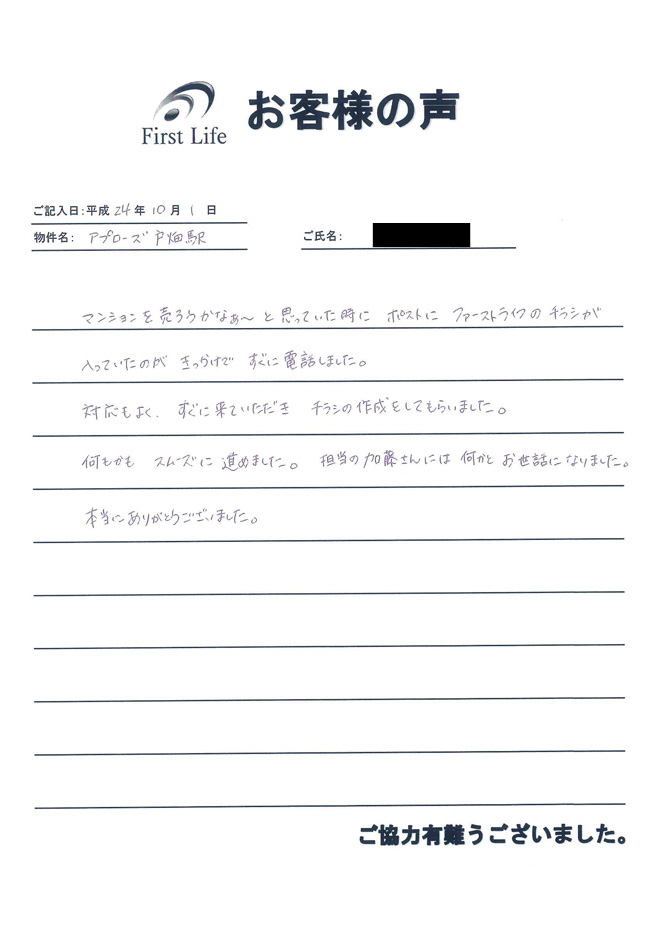 First Life
お客様の声
ご記入日:平成24年10月1日
物件名: アプローズ戸畑駅
ご氏名:
マンションを売ろうかなぁ~と思っていた時に ポストに ファーストライフの チラシが
入っていたのが きっかけで すぐに電話しました。
対応もよく、すぐに来ていただき チラシの作成をしてもらいました。
何もかも スムーズに 進めました。 担当の加藤さんには 何かと お世話になりました。
本当にありがとうございました。
ご協力有難うございました。